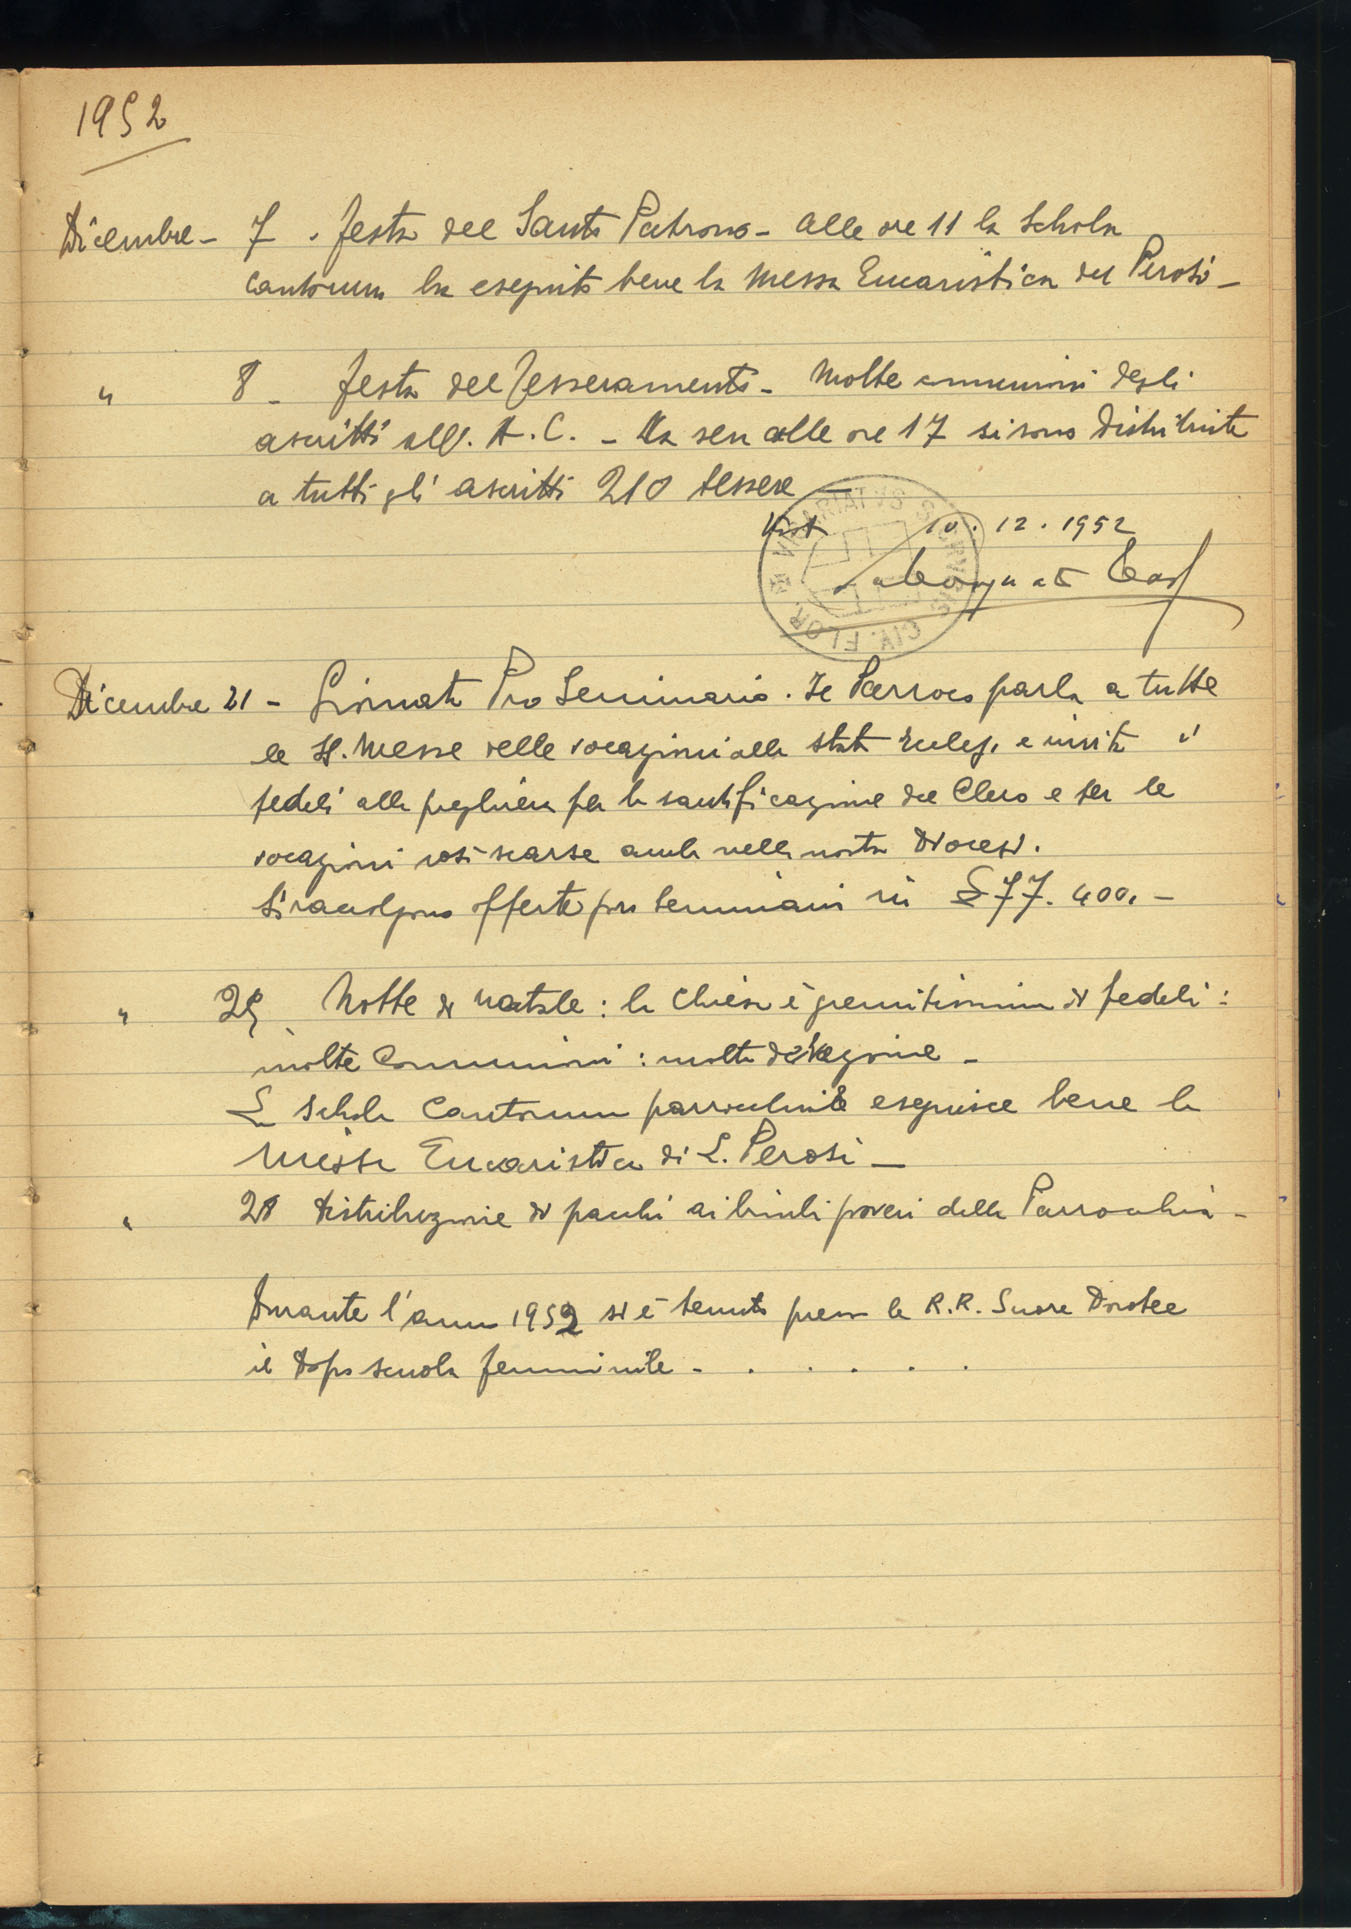 1952
Dicembre - 7 . festa del Santo Patrono - alle ore 11 la Schola
Cantorum ha eseguito bene la Messa Eucaristica del Perosi -
" 8 - festa del Tesseramento - Molte comunioni degli
ascritti all'. A. C. - La sera alle ore 17 si sono distribuite
a tutti gli ascritti 210 tessere -
Visto 10. 12. 1952
VICARIATVS CIV. FLOR
Dicembre 21 - Giornata Pro Seminario. Il Parroco parla a tutte
le SS. Messe delle vocazioni allo stato Eccles. e invita i
fedeli alla preghiera per la santificazione del Clero e per le
vocazioni così scarse anche nella nostra Diocesi.
Si raccolgono offerte pro seminario in £ 77. 400. -
" 25 Notte di Natale : la Chiesa è gremitissima di fedeli :
molte Comunioni : molta devozione -
La Schola Cantorum parrocchiale eseguisce bene la
Messa Eucaristica di L. Perosi -
" 28 Distribuzione di pacchi ai bimbi poveri della Parrocchia -
Durante l'anno 1952 si è tenuto presso le R.R. Suore Dorotee
il Dopo scuola femminile - . . . . .